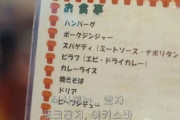 お食事
ハンバーグ
ポークジンジャー
スパゲティ（ミートソース・ナポリタン）
ピラフ（エビ・ドライカレー）
カレーライス
焼きそば
ドリア
ビーフシチュー
포크진저, 야키소바